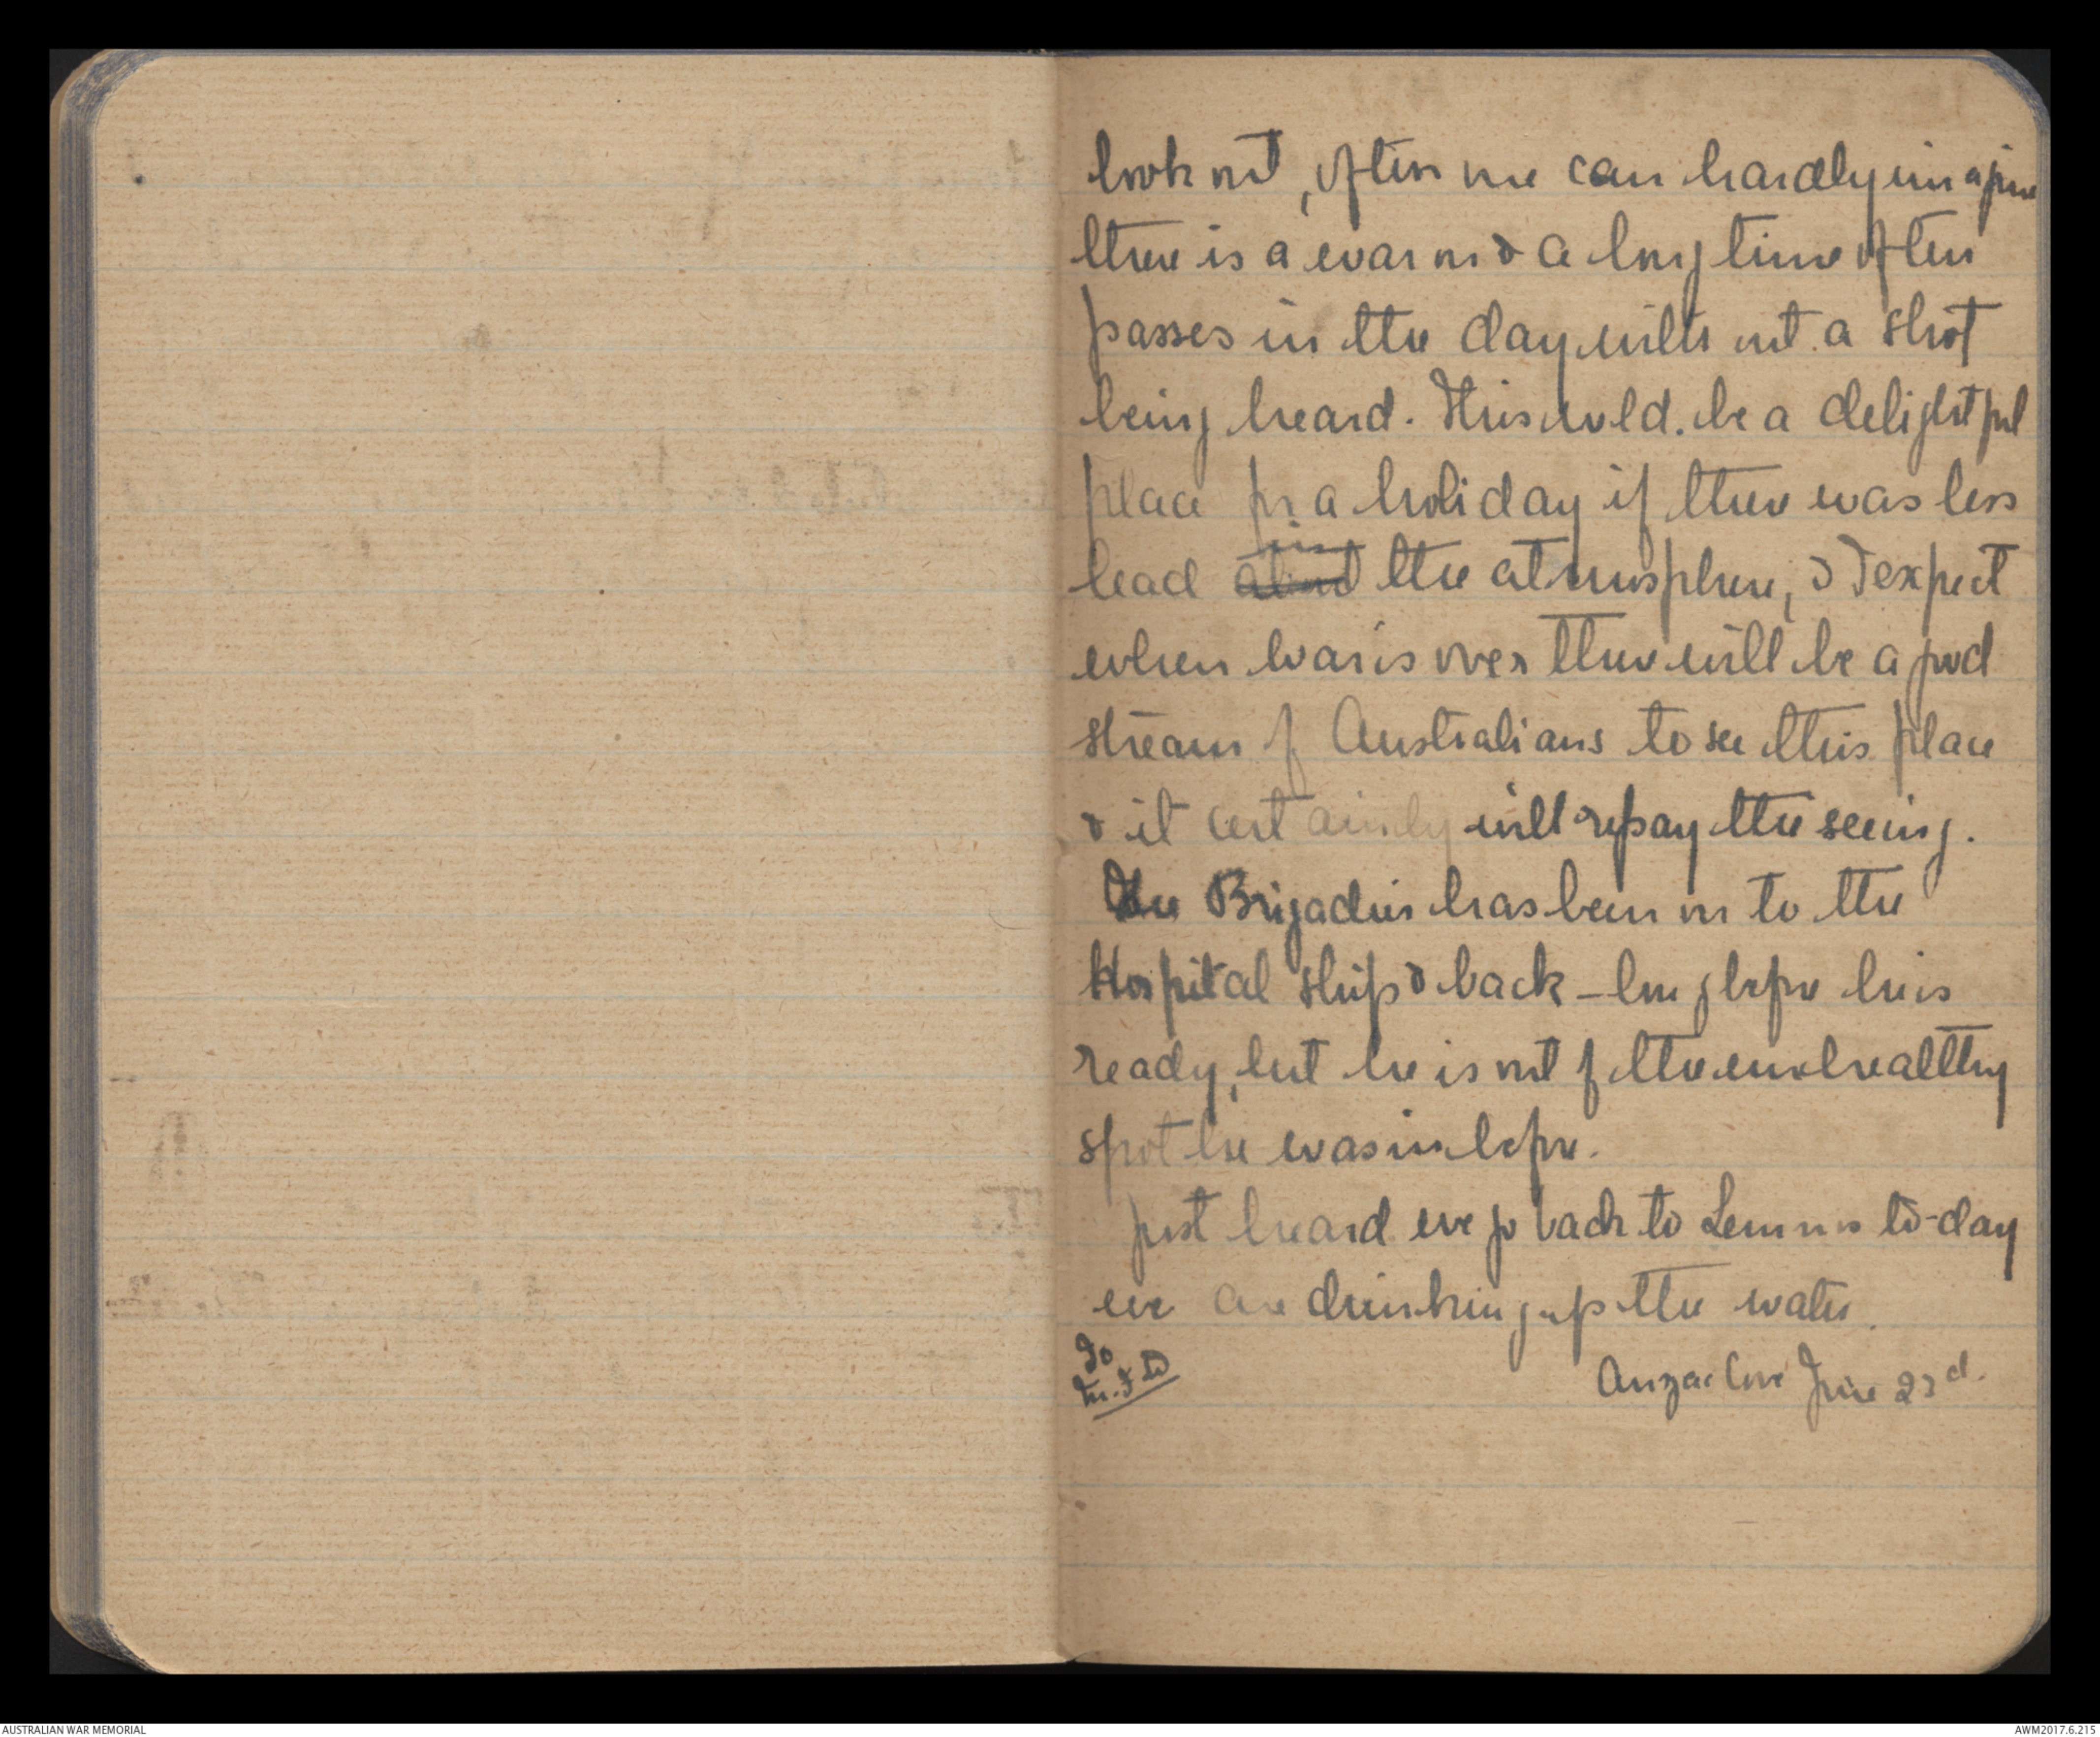 look out, often one can hardly imagine
there is a war on & a long time often
passes in the day without a shot
being heard. This wuld. be a delightful
place for a holiday if there was less
in
lead about the atmosphere, & I expect
when war is over there will be a good
stream of Australians to see this place
& it certainly will repay the seeing.
The Brigadier has been on to the
Hospital Ship & back – long before he is
ready, but he is out of the unhealthy
spot he was in before.
Just heard we go back to Lemnos to-day
we are drinking up the water.
Anzac Cove June 23rd.
AUSTRALIAN WAR MEMORIAL
AWM2017.6.215